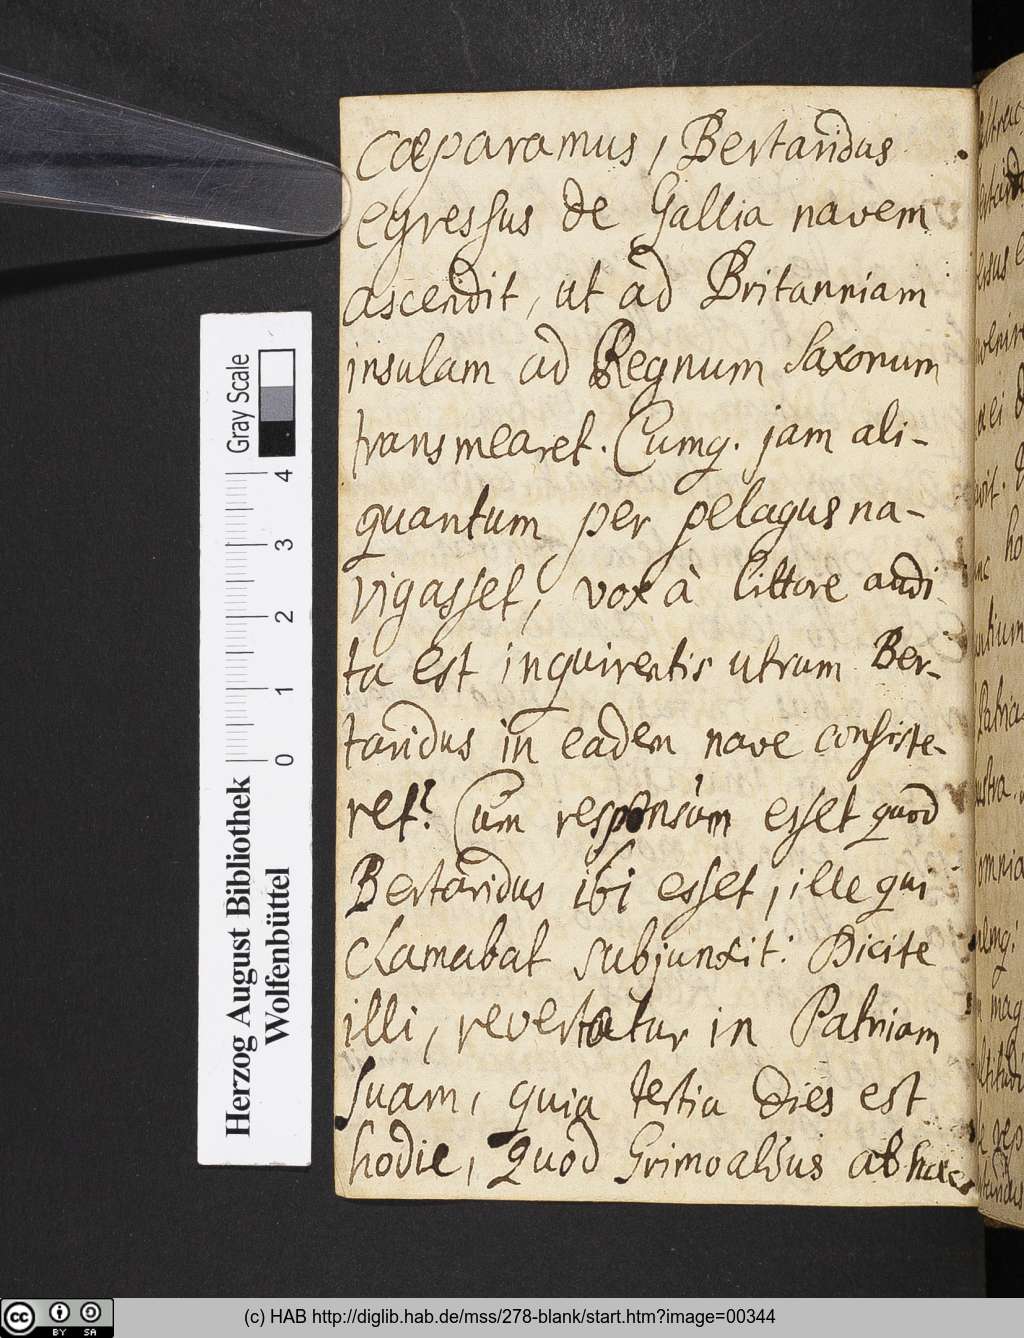 Cæparamus, Bertaridus
egressus de Gallia navem
ascendit, ut ad Britanniam
insulam ad Regnum Saxonum
transmearet. Cumq. jam ali-
quantum per pelagus na-
vigasset, vox à littore audi-
ta est inquirentis utrum Ber-
taridus in eadem nave consiste-
ret? Cum responsum esset quod
Bertaridus ibi esset, ille qui
clamabat subjunxit: Dicite
illi, revertatur in Patriam
suam, quia tertia dies est
hodie, quod Grimoaldus ab hac
Herzog August Bibliothek
Wolfenbüttel
0 1 2 3 4
Gray Scale
cc BY SA
(c) HAB http://diglib.hab.de/mss/278-blank/start.htm?image=00344